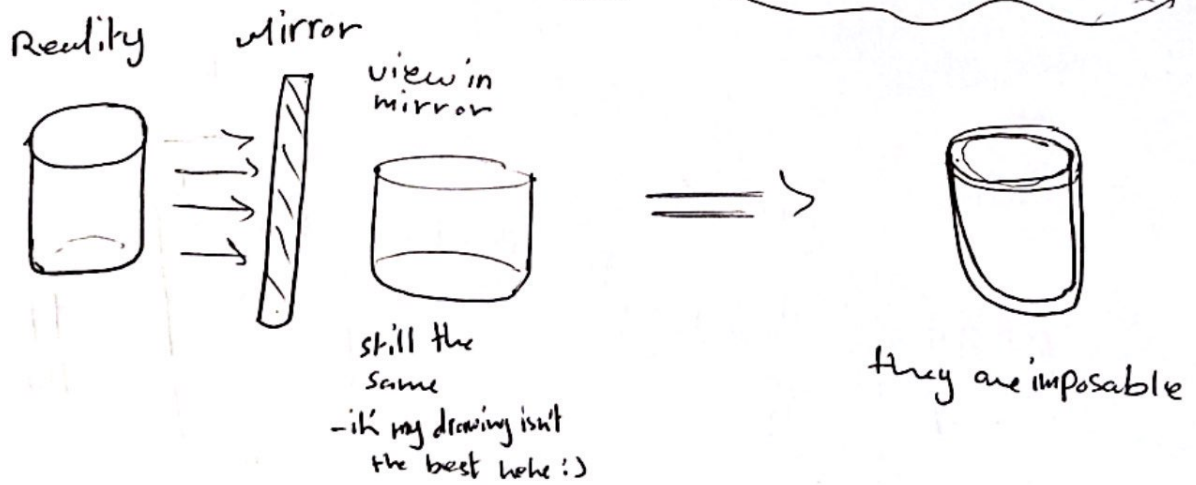 Reality
Mirror
view in
mirror
still the
same
my drawing isn't
the best hehe :)
they are imposable